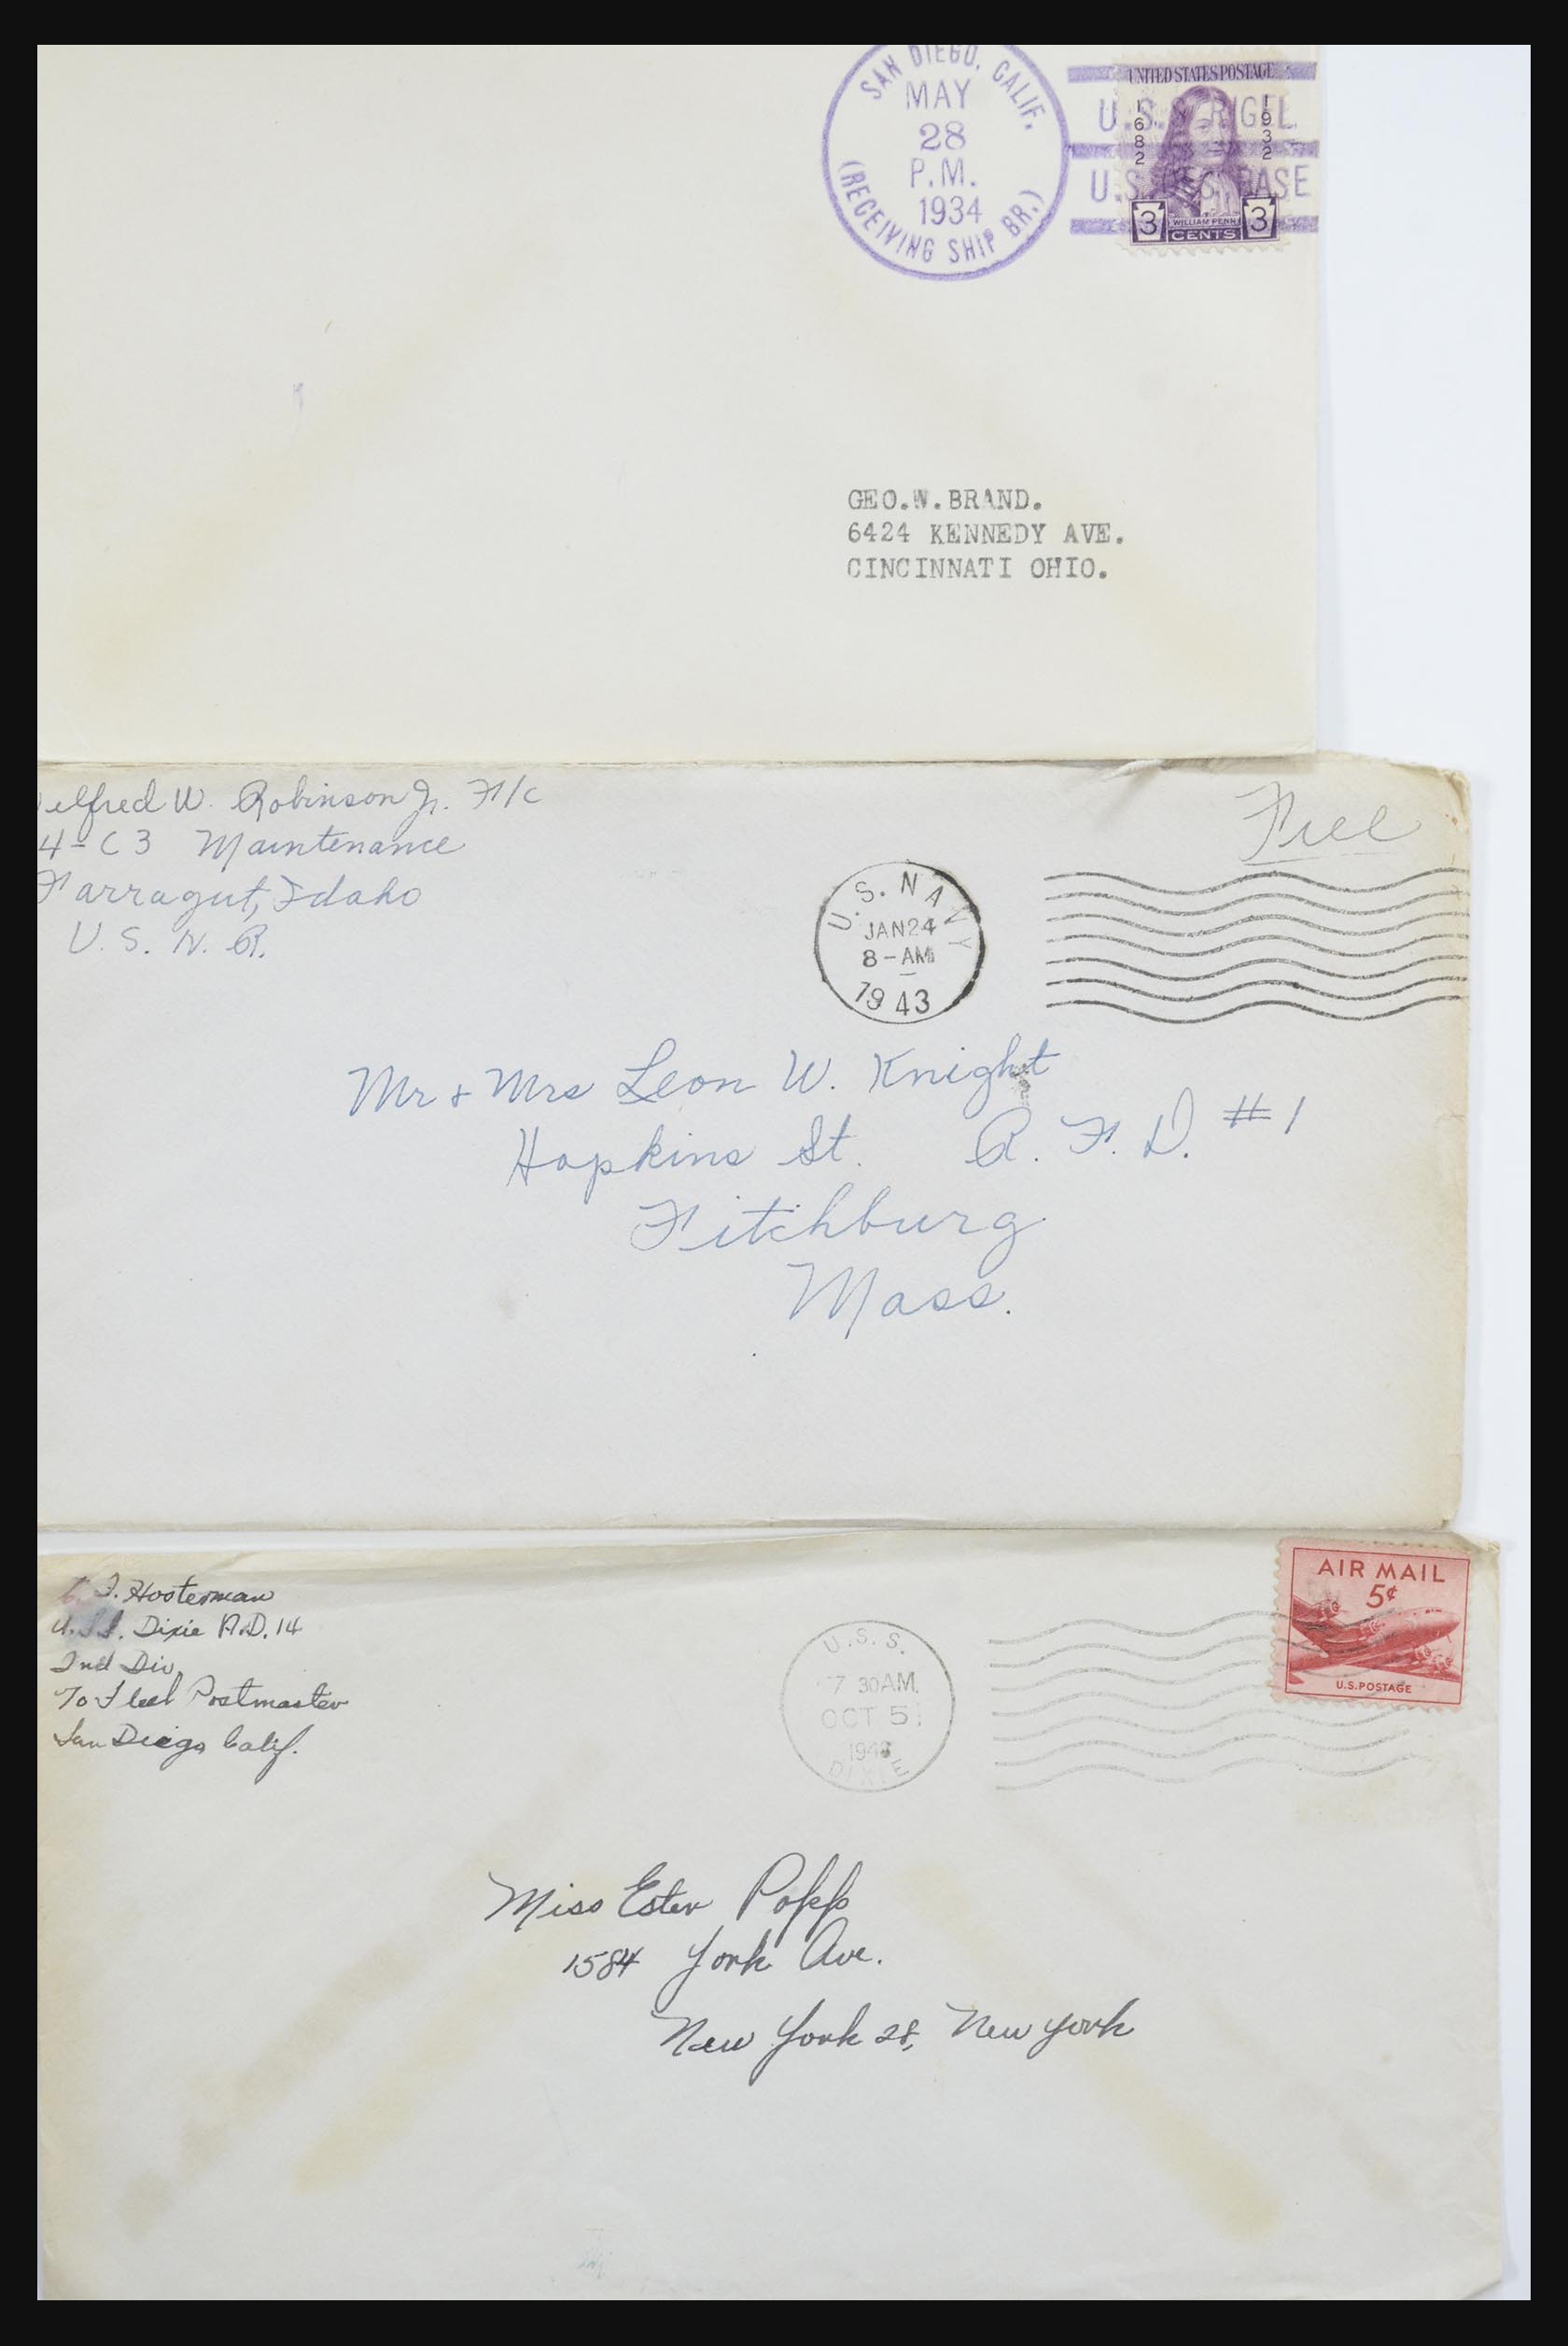 SAN DIEGO, CALIF.
MAY
28
P.M.
1934
(RECEIVING SHIP BR.)
UNITED STATES POSTAGE
1682 1932
U.S.S. RIGEL
U.S. DES. BASE
3 WILLIAM PENN 3
CENTS
GEO.W.BRAND.
6424 KENNEDY AVE.
CINCINNATI OHIO.
elfred W. Robinson Jr. F1/c
4-C3 Maintenance
Farragut, Idaho
U. S. N. R.
Free
U.S. NAVY
JAN 24
8-AM
1943
Mr + Mrs Leon W. Knight
Hopkins St. R. F. D. #1
Fitchburg
Mass.
F. Hosterman
U.S.S. Dixie A.D. 14
2nd Div.
To Fleet Postmaster
San Diego Calif.
AIR MAIL
5¢
U.S. POSTAGE
U.S.S.
7 30AM.
OCT 5
DIXIE
Miss Ester Popp
1584 York Ave.
New York 28, New York